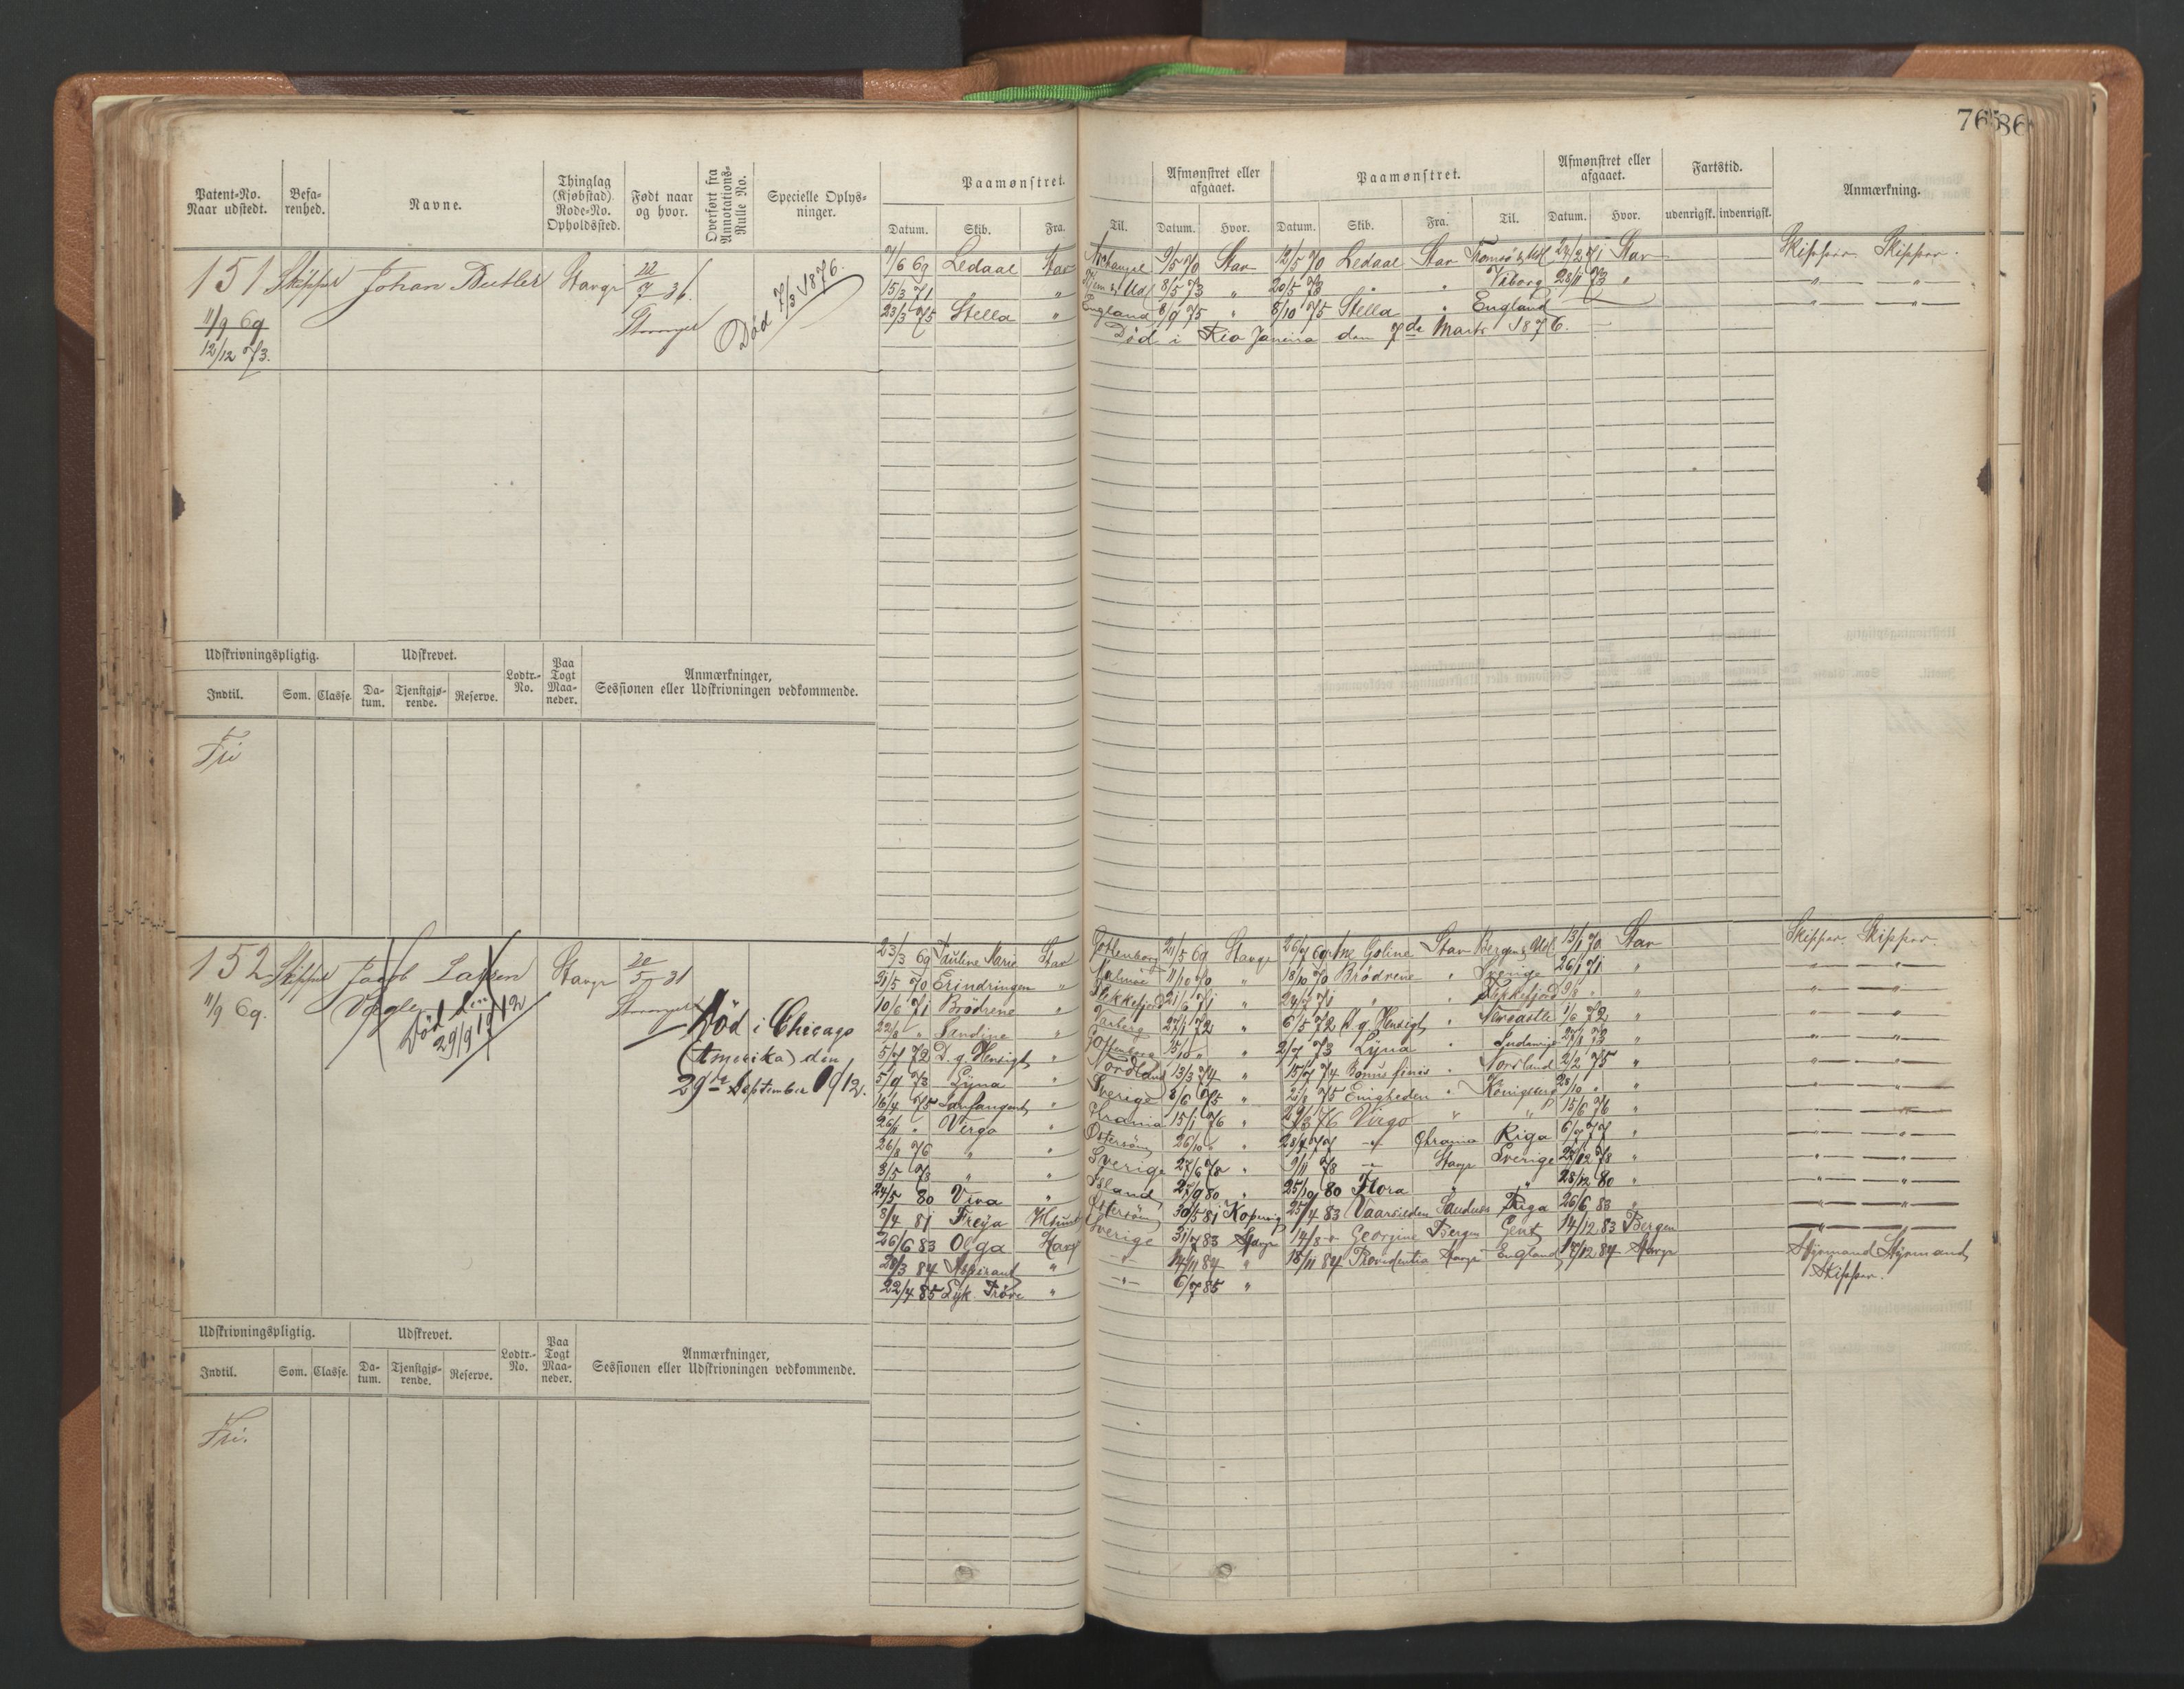 76
86
Patent-No. Naar udstedt.
Befa-renhed.
Navne.
Thinglag (Kjøbstad) Rode-No. Opholdssted.
Født naar og hvor.
Overført fra Annotations-Rulle No.
Specielle Oplys-ninger.
Paamønstret.
Datum. Skib. Fra. Til.
Afmønstret eller afgaaet.
Datum. Hvor.
Paamønstret.
Datum. Skib. Fra. Til.
Afmønstret eller afgaaet.
Datum. Hvor.
Fartstid.
udenrigsk. indenrigsk.
Anmærkning.
151 Skipper Johan Butler Stavgr 22/7 36
Død 7/3 1876.
11/9 69
12/12 73.
7/6 69 Ledaal Stav 9/5 70 Stav 12/5 70 Ledaal Stav 24/2 71 Stav Skipper. Skipper.
15/3 71 " " 8/5 73 " 20/5 73 " " Viborg 28/11 73 " " "
23/3 75 Stella " England 8/9 75 " 8/10 75 Stella " England " "
Død i Rio Janeiro den 7de Marts 1876.
Udskrivningspligtig. Udskrevet. Lodtr.-No. Paa Togt Maa-neder. Anmærkninger, Sessionen eller Udskrivningen vedkommende.
Indtil. Som. Classe. Da-tum. Tjenstgjø-rende. Reserve.
Fri
152 Skipper Jacob Larsen Stavgr 20/5 31
11/9 69. Vagle
Død den 29/9 1912
Død i Chicago
(Amerika) den
29de September 1912.
23/3 69 Pauline Marie Stav Gottenborg 21/5 69 Stavgr 26/7 69 Ane Goline Stav 13/1 70 Stav Skipper. Skipper.
31/5 70 Erindringen " Malmø 11/10 70 " 18/10 70 Brødrene " Sverige 26/1 71 " " "
10/6 71 Brødrene " Flekkefjord 21/6 71 " " " Flekkefjord " " "
22/8 " Sandine " Varberg 27/1 72 " 6/5 72 D. g. Hensigt " Newcastle 1/6 72 " " "
5/7 72 D. g. Hensigt " Gottenborg " 2/7 73 Lyna " " " "
5/9 73 Lyna " Nordland 13/3 74 " 15/7 74 Bonus finis " Nordland 2/2 75 " " "
16/4 75 " Sverige 8/6 75 " Enigheden " Königsberg " " "
26/11 " Virgo " Krania 15/1 76 " 29/3 76 Virgo " " 15/6 76 " " "
26/8 76 " " Østersøen 26/10 " " Chrania Riga 6/7 77 " " "
3/5 78 " " Sverige 27/6 78 " 9/11 78 " Stavgr Sverige 27/12 78 " " "
24/5 80 Viva " Island 27/9 80 " 25/10 80 Flora " " 28/12 80 " " "
3/4 81 Freya Hsund Østersøen 30/5 81 Kopervig 25/4 83 Vaarsilden Sandnes Riga 26/6 83 " " "
26/6 83 Olga Stavgr Sverige 31/7 83 Stavgr 14/8 " Georgine Bergen Gent 14/12 83 Bergen " "
28/3 84 Aspirant " " 14/11 84 " 18/11 84 Providentia Stavgr England 17/12 84 Stavgr Styrmand Styrmand
22/4 85 Lyk. Prøve " " 6/7 85 " Skipper.
Udskrivningspligtig. Udskrevet. Lodtr.-No. Paa Togt Maa-neder. Anmærkninger, Sessionen eller Udskrivningen vedkommende.
Indtil. Som. Classe. Da-tum. Tjenstgjø-rende. Reserve.
Fri.